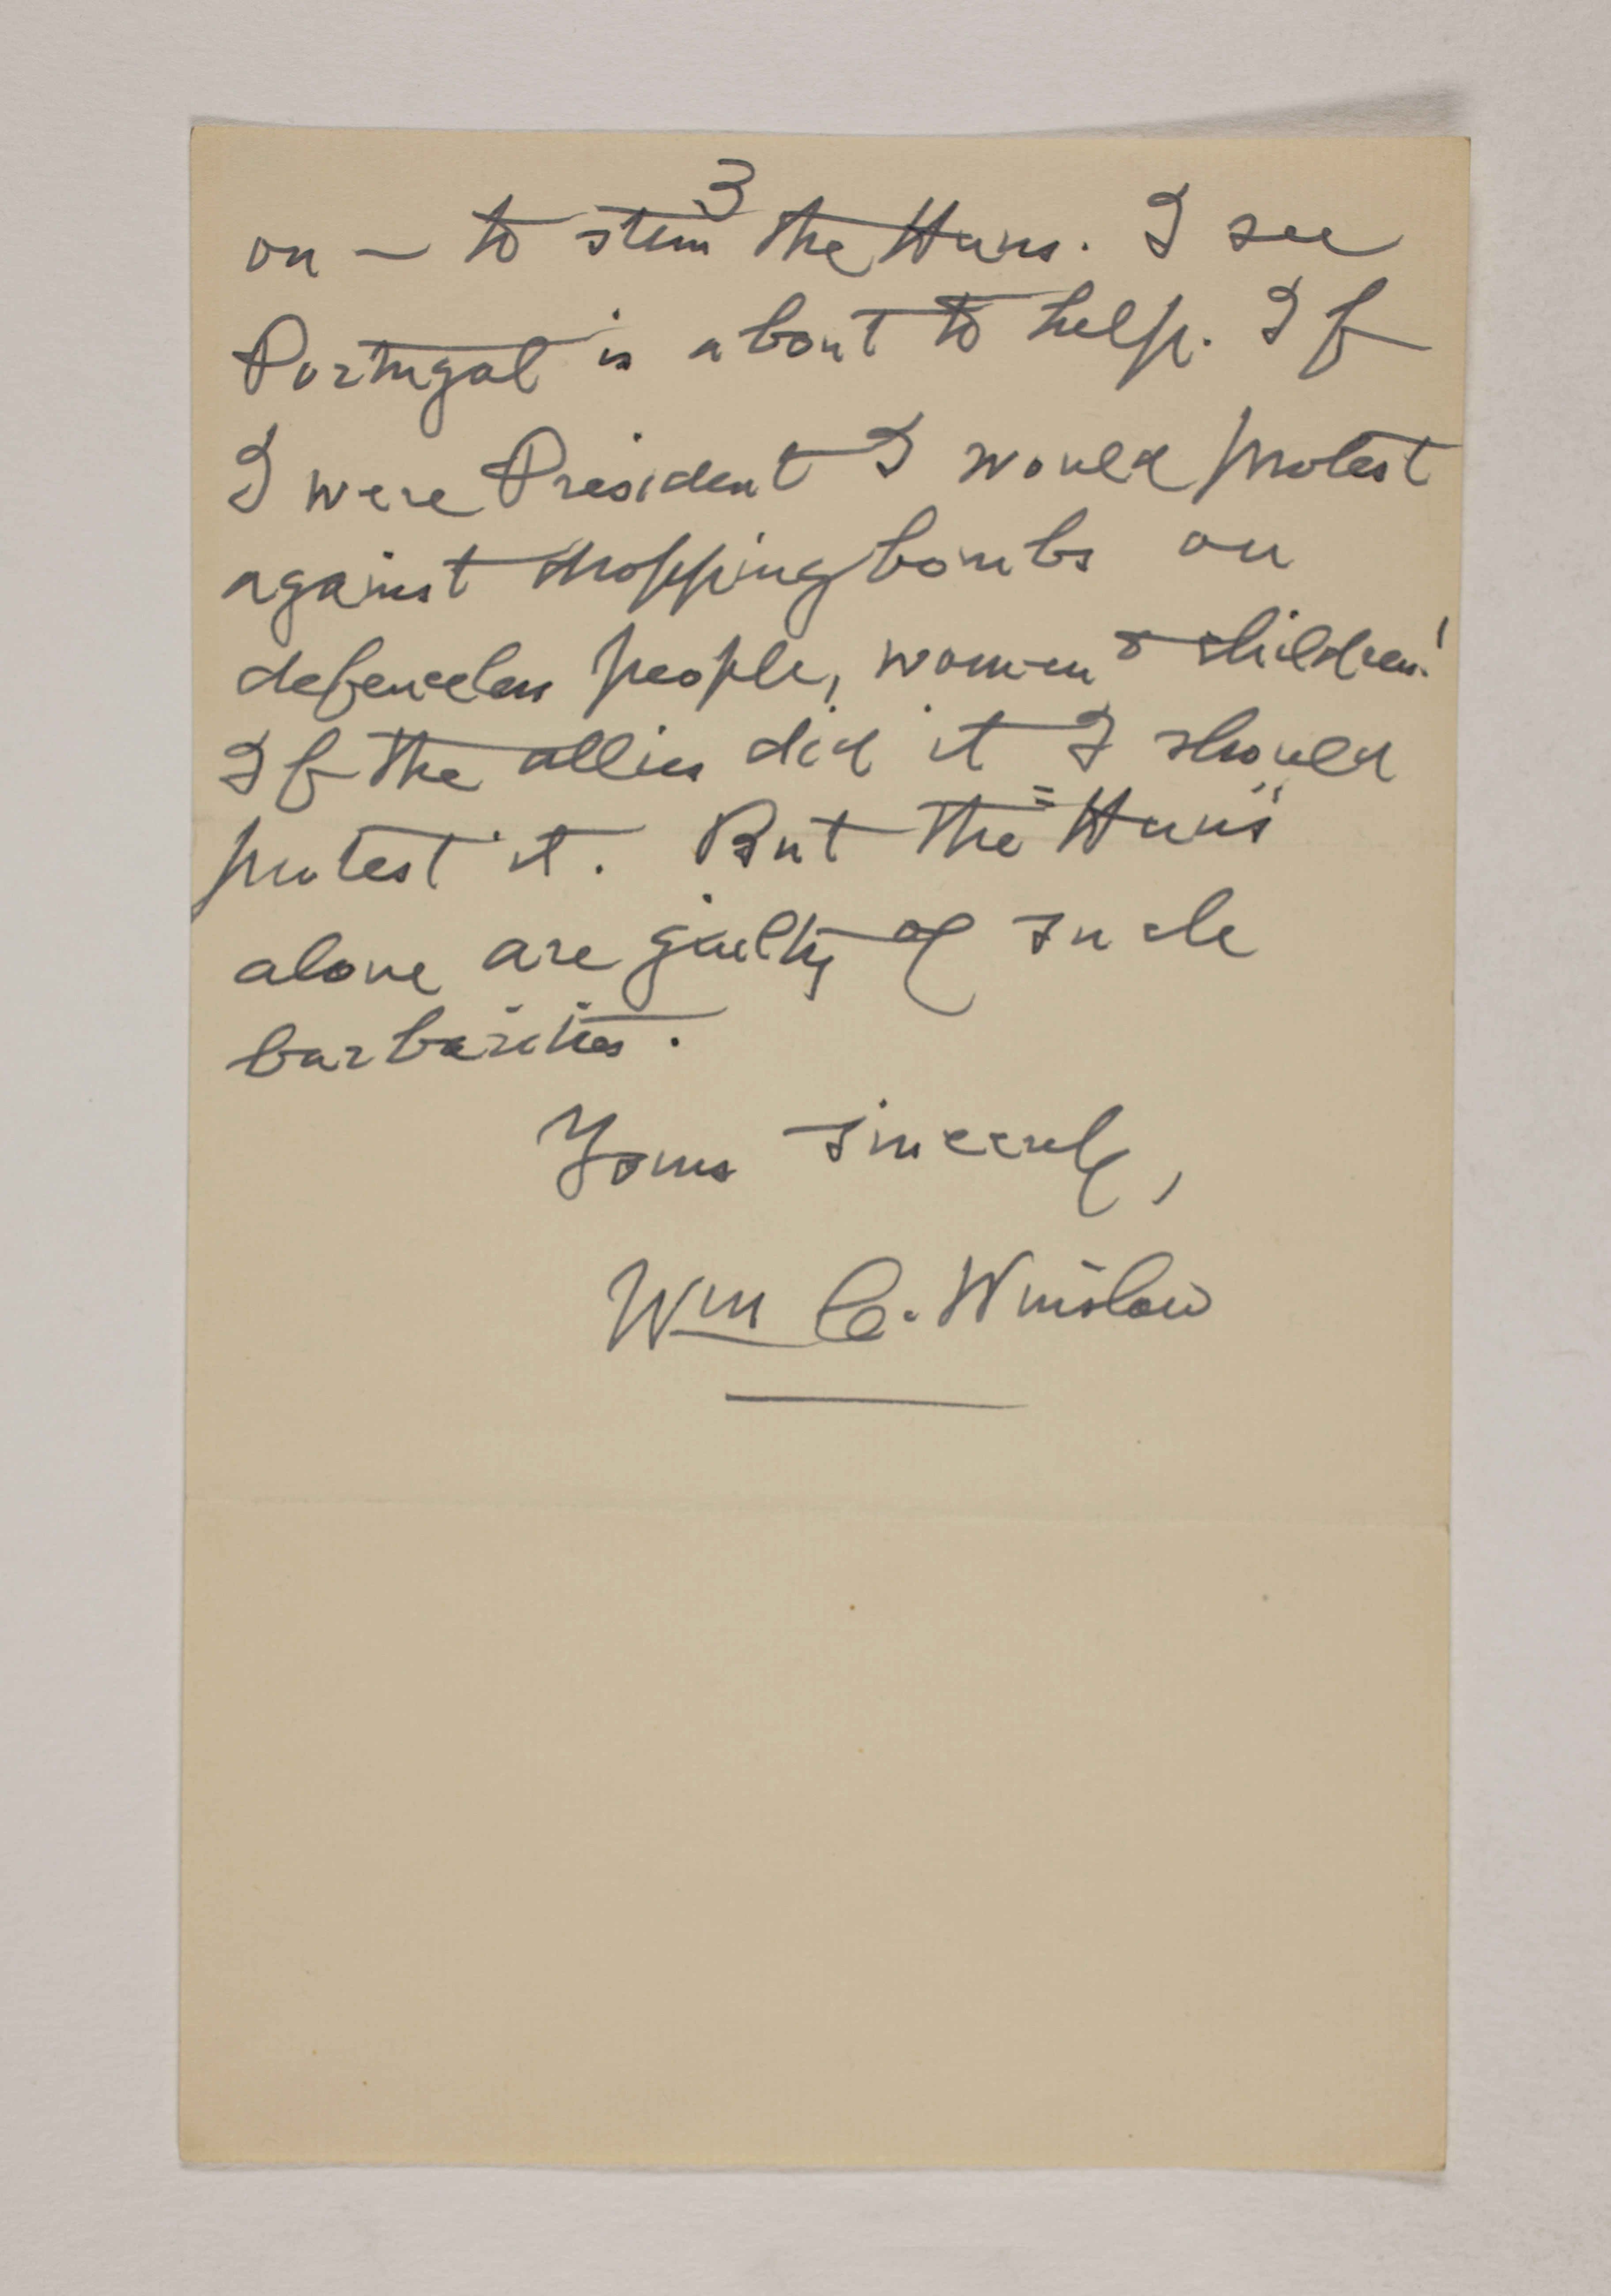 3
on — to stem the Huns. I see
Portugal is about to help. If
I were President I would protest
against dropping bombs on
defenceless people, women & children!
If the allies did it I should
protest it. But the "Huns"
alone are guilty of such
barbarities.
Yours sincerely,
Wm C. Winslow